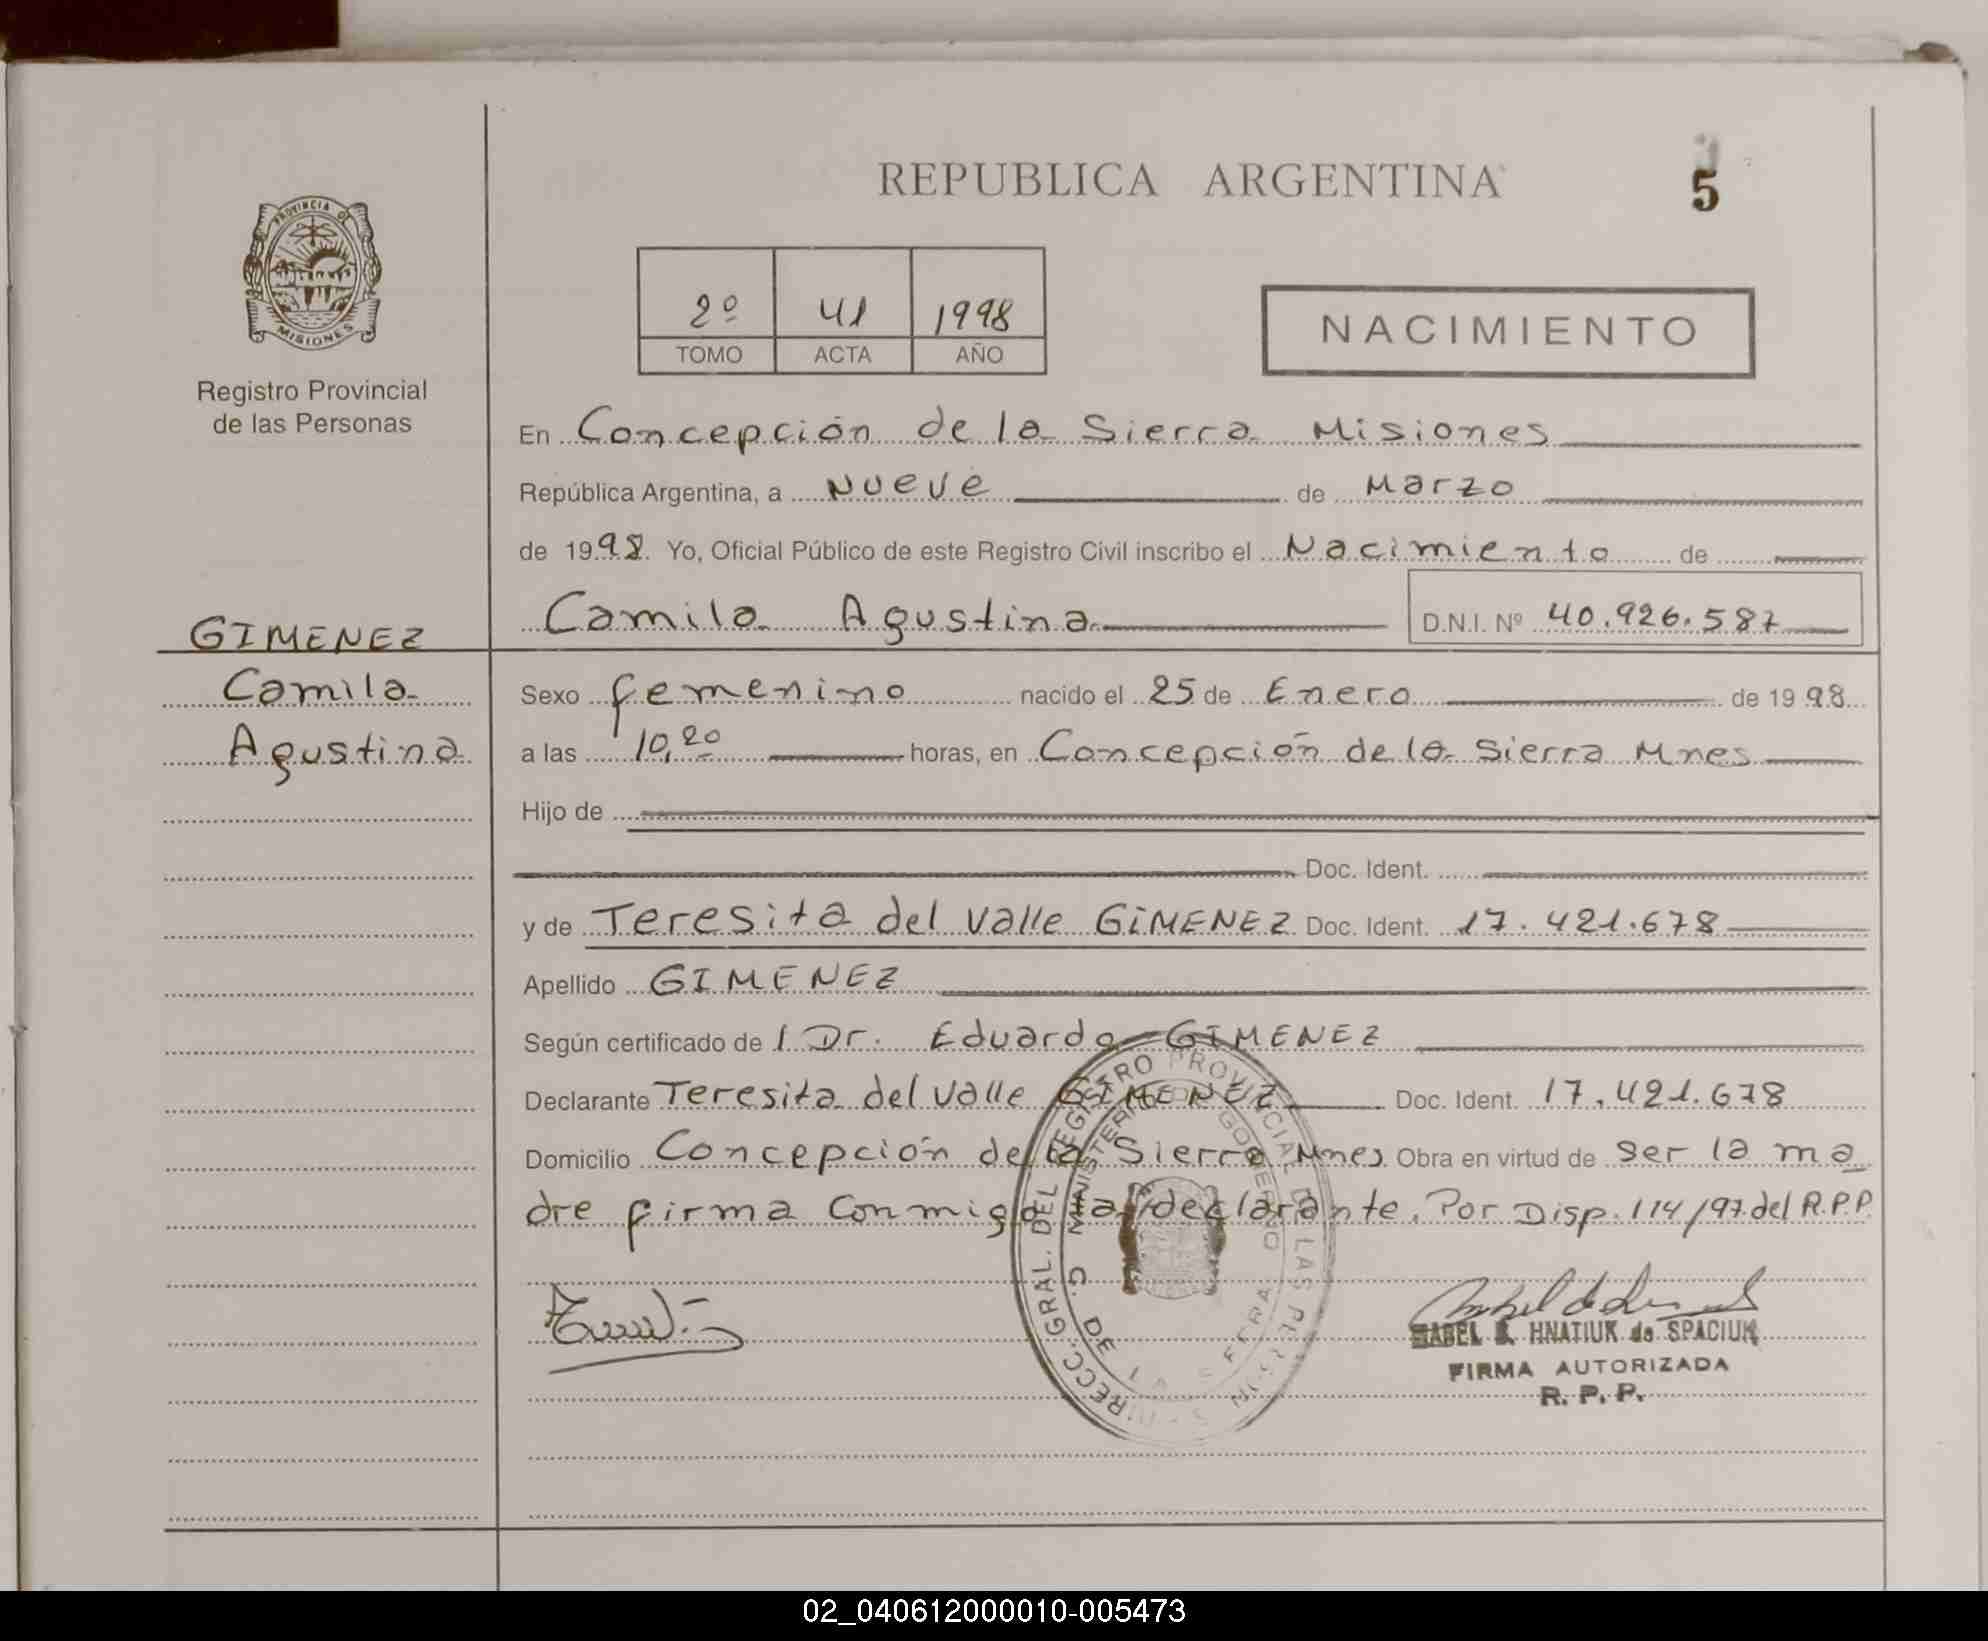 REPUBLICA ARGENTINA
5
PROVINCIA DE
MISIONES
Registro Provincial
de las Personas
2º 41 1998
TOMO ACTA AÑO
NACIMIENTO
En Concepción de la Sierra Misiones
República Argentina, a Nueve de Marzo
de 1998. Yo, Oficial Público de este Registro Civil inscribo el Nacimiento de
Camila Agustina D.N.I. Nº 40.926.587
GIMENEZ
Camila
Agustina
Sexo femenino nacido el 25 de Enero de 1998
a las 10,20 horas, en Concepción de la Sierra Mnes
Hijo de
Doc. Ident.
y de Teresita del Valle GIMENEZ Doc. Ident. 17.421.678
Apellido GIMENEZ
Según certificado de Dr. Eduardo GIMENEZ
Declarante Teresita del Valle GIMENEZ Doc. Ident. 17.421.678
Domicilio Concepción de la Sierra Mnes Obra en virtud de ser la ma
dre firma conmigo la declarante. Por Disp. 114/97 del R.P.P
DIRECC. GRAL. DEL REGISTRO PROVINCIAL DE LAS PERSONAS
MINISTERIO DE GOBIERNO
C. DE LA SIERRA
HNATIUK de SPACIUK
FIRMA AUTORIZADA
R. P. P.
02_040612000010-005473